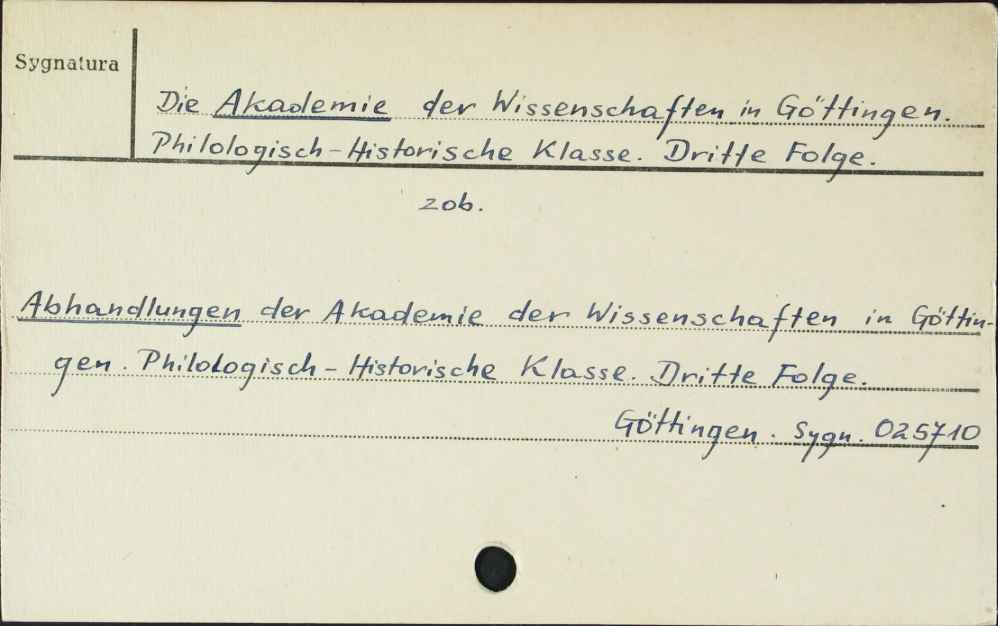 Sygnatura
Die Akademie der Wissenschaften in Göttingen.
Philologisch-Historische Klasse. Dritte Folge.
zob.
Abhandlungen der Akademie der Wissenschaften in Göttin-
gen. Philologisch-Historische Klasse. Dritte Folge.
Göttingen. Sygn. 025710